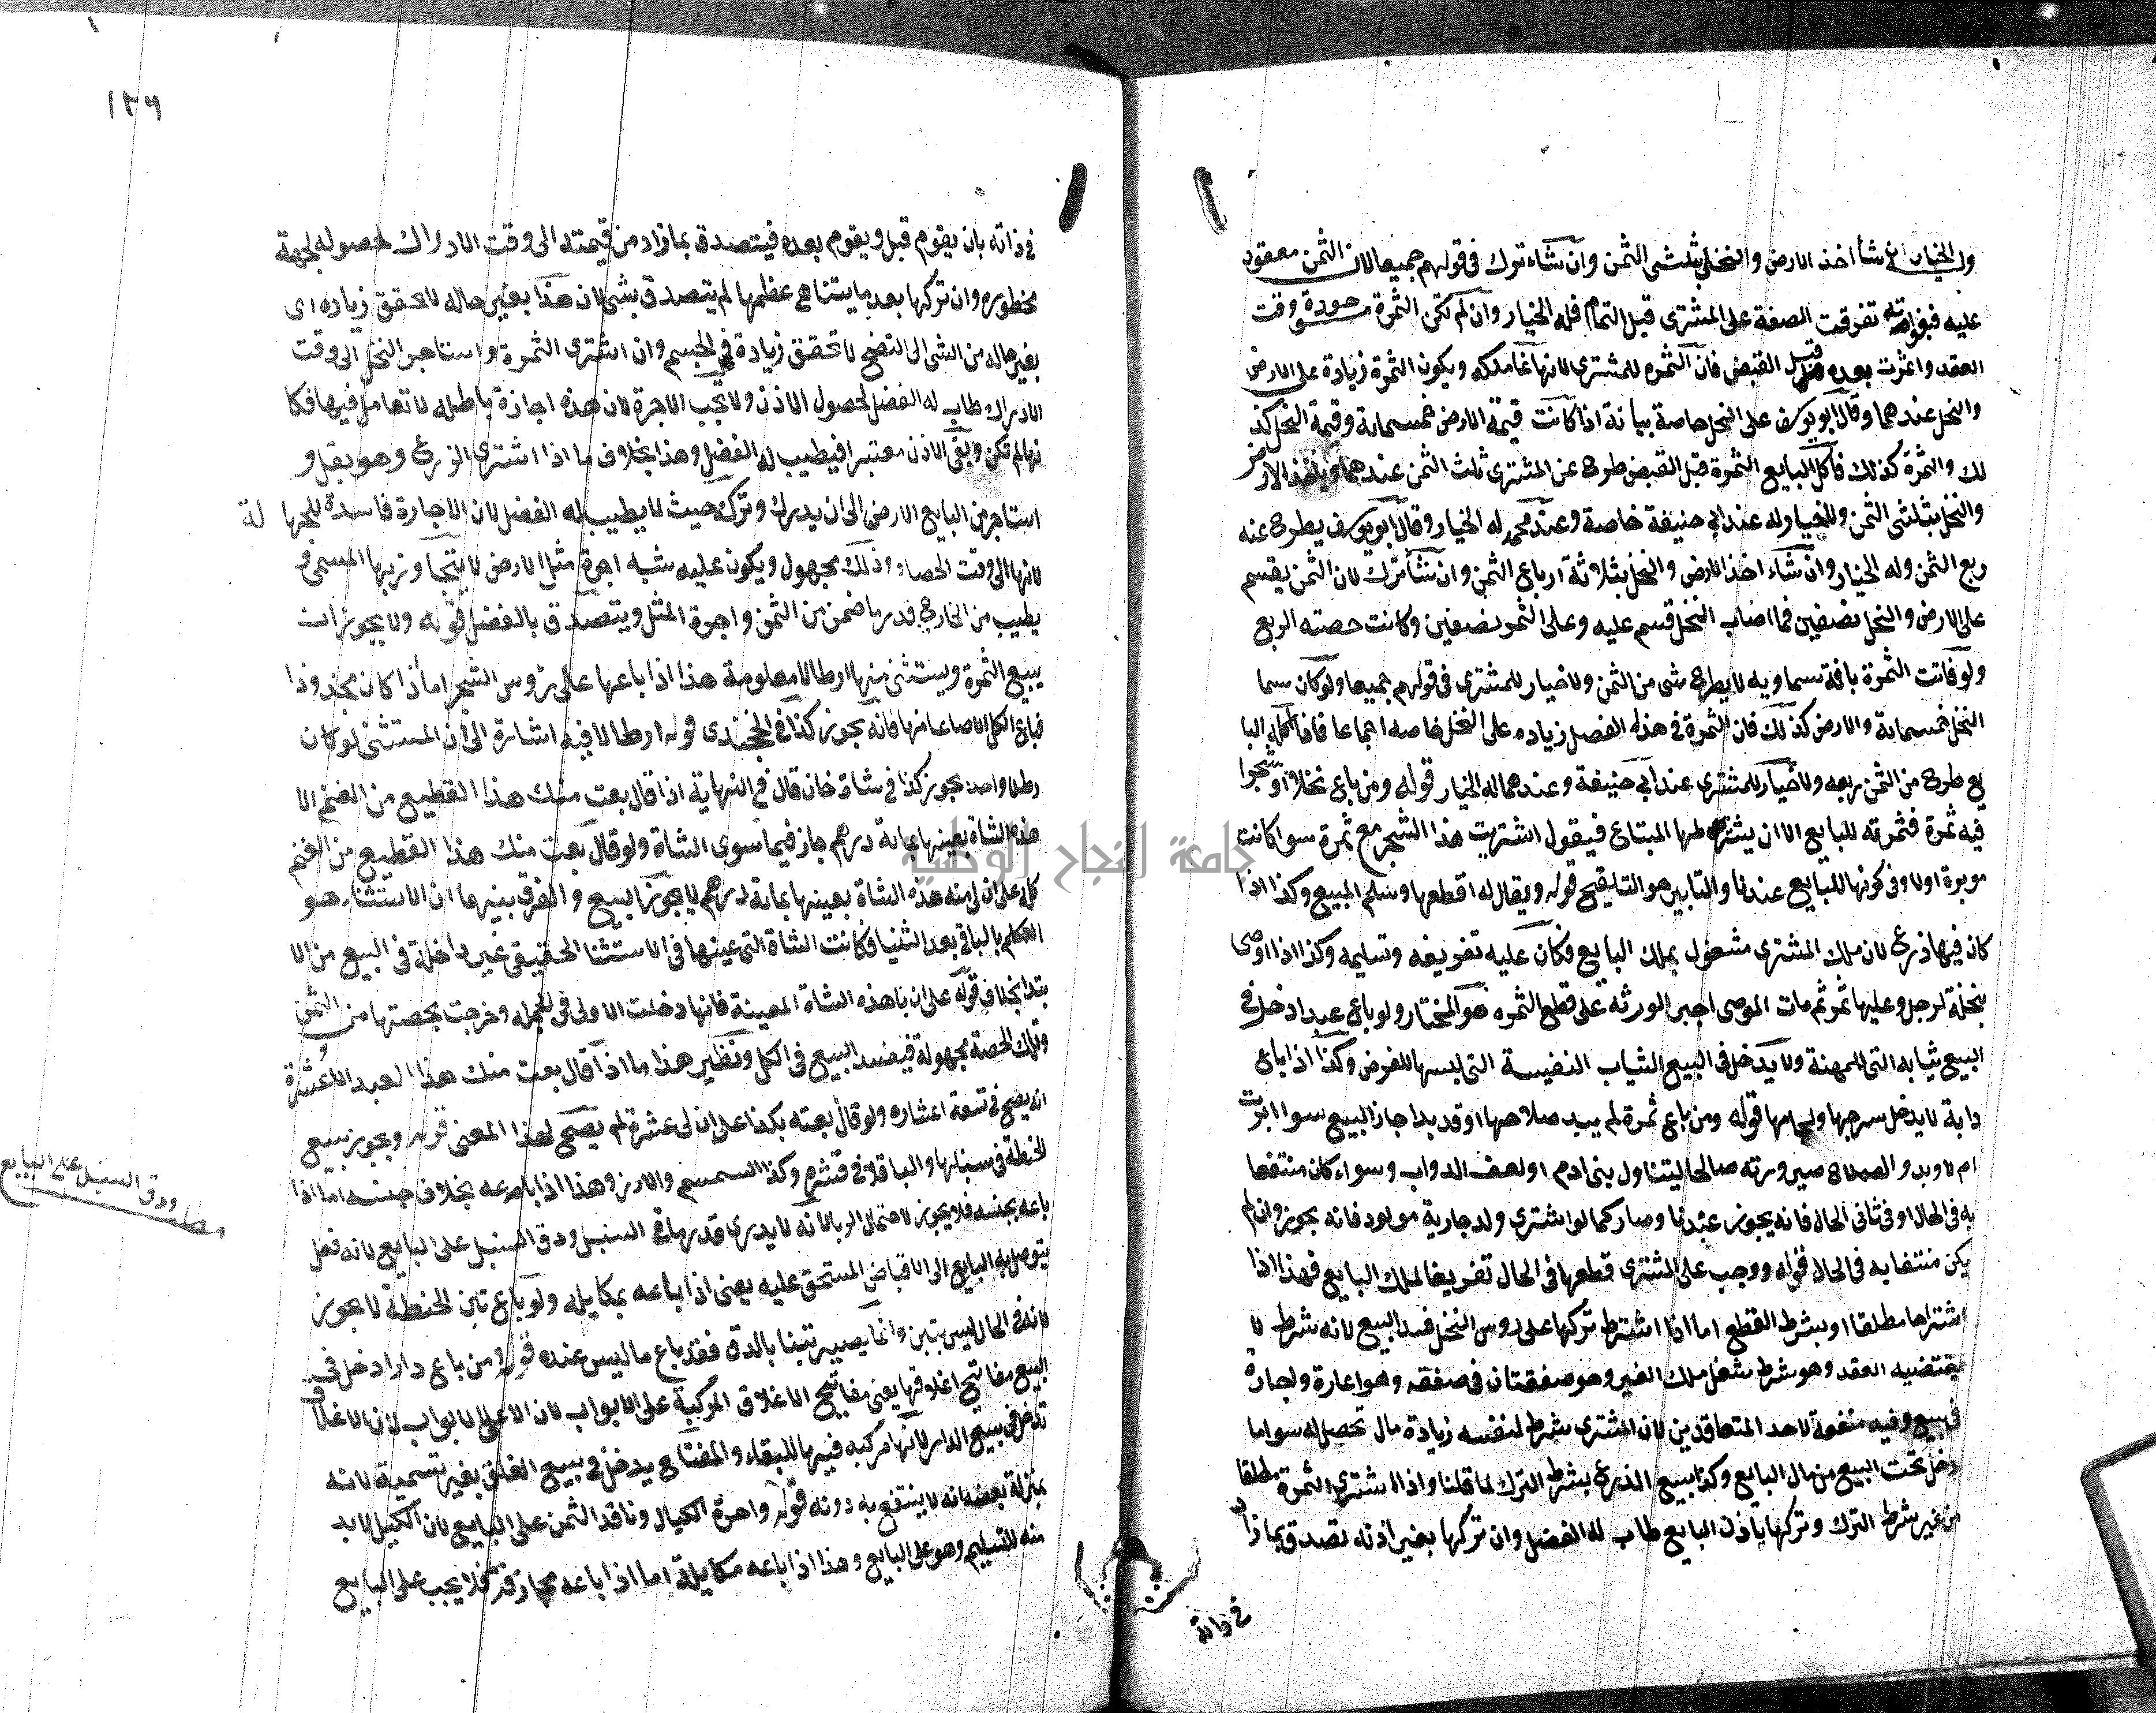 وله الخيار ان شأ اخذ الارض والنخل بثلثى الثمن وان شاء ترك فى قولهم جميعا لان الثمن معقود
عليه فبفواته تفرقت الصفة على المشترى قبل التمام فله الخيار وان لم تكن الثمرة موجودة وقت
العقد واثمرت بعده قبل القبض فان الثمره للمشترى لانها نما ملكه ويكون الثمرة زيادة على الارض
والنخل عندهما وقال ابو يوسف على النخل خاصة بيانه اذا كانت قيمة الارض خمسمائة وقيمة النخل كذ
لك والثمرة كذلك فاكل البايع الثمرة قبل القبض طرح عن المشترى ثلث الثمن عندهما وياخذ الارض
والنخل بثلثى الثمن ولاخيار له عند ابى حنيفة خاصة وعند محمد له الخيار وقال ابو يوسف يطرح عنه
ربع الثمن وله الخيار وان شاء اخذ الارض والنخل بثلاثة ارباع الثمن وان شأ ترك لان الثمن يقسم
على الارض والنخل نصفين فما اصاب النخل قسم عليه وعلى الثمر نصفين وكانت حصته الربع
ولو فاتت الثمرة بافة سماويه لا يطرح شى من الثمن ولا خيار للمشترى فى قولهم جميعا ولو كان سما
النخل خمسمائة والارض كذلك فان الثمرة فى هذه الفصل زياده على النخل خاصه اجماعا فاذا اكله البا
يع طرح من الثمن ربعه ولا خيار للمشترى عند ابى حنيفة وعندهما له الخيار قوله ومن باع نخلا او شجرا
فيه ثمرة فثمرته للبايع الا ان يشترطها المبتاع فيقول اشتريت هذا الشجر مع ثمرة سوا كانت
موبرة اولا وفى كونها للبايع عندنا والتابير هو التلقيح قوله ويقال له اقطعها وسلم المبيع وكذا اذا
كان فيها زرع لان ملك المشترى مشغول بملك البايع فكان عليه تفريغه وتسليمه وكذا اذا اوصى
بنخلة لرجل وعليها ثمر ثم مات الموصى اجبر الورثة على قطع الثمره هو المختار ولو باع عبدا دخل فى
البيع ثيابه التى للمهنة ولا يدخل فى البيع الثياب النفيسة التى لبسها للعرض وكذا اذا باع
دابة لا يدخل سرجها ولجامها قوله ومن باع ثمرة لم يبد صلاحها او قد بدا جاز البيع سوا ابرت
ام لا وبدو الصلاح صيرورته صالحا ليتناول بنى ادم او لعلف الدواب وسواء كان منتفعا
به فى الحال او فى ثانى الحال فانه يجوز عندنا وصار كما لو اشترى ولد جارية مولود فانه يجوز وان لم
يكن منتفعا به فى الحال قوله ووجب على المشترى قطعها فى الحال تفريغا لملك البايع فهذا اذا
اشتراها مطلقا او بشرط القطع اما اذا اشترط تركها على روس النخل فسد البيع لانه شرط لا
يقتضيه العقد وهو شرط شغل ملك الغير وهو صفقتان فى صفقه وهو اعارة واجارة
فى بيع وفيه منفعة لاحد المتعاقدين لان المشترى شرط لنفسه زيادة مال تحصل له سوا ما
دخل تحت البيع من مال البايع وكذا بيع الزرع بشرط الترك لما قلنا واذا اشترى الثمرة مطلقا
من غير شرط الترك وتركها باذن البايع طاب له الفضل وان تركها بغير اذنه تصدق بما زاد
فى ذاته
١٢٦
فى ذاته بان يقوم قبل ويقوم بعده فيتصدق بما زاد من قيمته الى وقت الادراك لحصوله لجهة
محظوره وان تركها بعد ما يتناهى عظمها لم يتصدق بشى لان هذا بغير حاله لا تحقق زياده اى
بغير حاله من الشى الى النضج لا تحقق زيادة فى الجسم وان اشترى الثمرة واستاجر النخل الى وقت
الادراك طاب له الفضل لحصول الاذن ولا يجب الاجرة لان هذه اجازة باطله لا تعامل فيها فكا
نها لم تكن وبقى الاذن معتبرا فيطيب له الفضل وهذا بخلاف ما اذا اشترى الزرع وهو بقل و
استاجر من البايع الارض الى ان يدرك وتركه حيث لا يطيب له الفضل لان الاجارة فاسدة للجها لة
لانها الى وقت الحصاد وذلك مجهول ويكون عليه شبه اجرة مثل الارض لا يتجاوز بها المسمى و
يطيب من الخارج قدر ما ضمن من الثمن واجرة المثل ويتصدق بالفضل قوله ولا يجوز ان
يبيع الثمرة ويستثنى منها ارطالا معلومة هذا اذا باعها على رؤس الشجر اما اذا كان مجذوذا
فباع الكل الا صاعا منها فانه يجوز كذا فى الخجندى قوله ارطالا فيه اشارة الى ان المستثنى لو كان
رطلا واحدا يجوز كذا فى شاة خان قال فى النهاية اذا قال بعت منك هذا القطيع من الغنم الا
هذه الشاة بعينها بمائة درهم جاز فيما سوى الشاة ولو قال بعت منك هذا القطيع من الغنم
كله على ان لى منه هذه الشاة بعينها بمائة درهم لا يجوز البيع والفرق بينهما ان الاستثناء هو
التكلم بالباقى بعد الثنيا فكانت الشاة التى عينها فى الاستثنا الحقيقى غير داخلة فى البيع من الا
بتدا بخلاف قوله على ان لى هذه الشاة المعينة فانها دخلت الاولى فى الجمله وخرجت بحصتها من الثمن
وتلك الحصة مجهولة فيفسد البيع فى الكل ونظير هذا ما اذا قال بعت منك هذا العبد الا عشرة
انه يصح فى تسعة اعشاره ولو قال بعته بكذا على ان لى عشرة لم يصح لهذا المعنى قوله ويجوز بيع
الحنطة فى سنبلها والباقلا فى قشره وكذا السمسم والارز وهذا اذا باعه بخلاف جنسه اما اذا
باعه بجنسه فلا يجوز لاحتمال الربا لانه لا يدرى قدر ما فى السنبل ودق السنبل على البايع لانه فعل
يتوصل به البايع الى الاقباض المستحق عليه يعنى اذا باعه بمكايله ولو باع تبن الحنطة لا يجوز
لانه فى الحال ليس بتبن وانما يصير تبنا بالدق فقد باع ما ليس عنده قوله ومن باع دارا دخل فى
البيع مفاتيح اغلاقها يعنى مفاتيح الاغلاق المركبة على الابواب لان الاغلاق
تدخل فى بيع الدار لانها مركبه فيها للبقاء والمفتاح يدخل فى بيع الغلق بغير تسمية لانه
بمنزلة بعضه لانه لا ينتفع به دونه قوله واجرة الكيال وناقد الثمن على البايع لان الكيل لا بد
منه للتسليم وهو على البايع وهذا اذا باعه مكايلة اما اذا باعه مجازفة فلا يجب على البايع
مط ودق السنبل على البايع
جامعة النجاح الوطنية